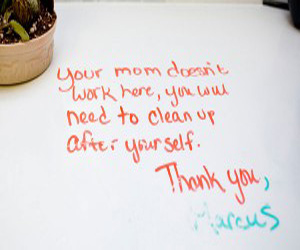 your mom doesn't
work here, you will
need to clean up
after yourself.
Thank you,
Marcus